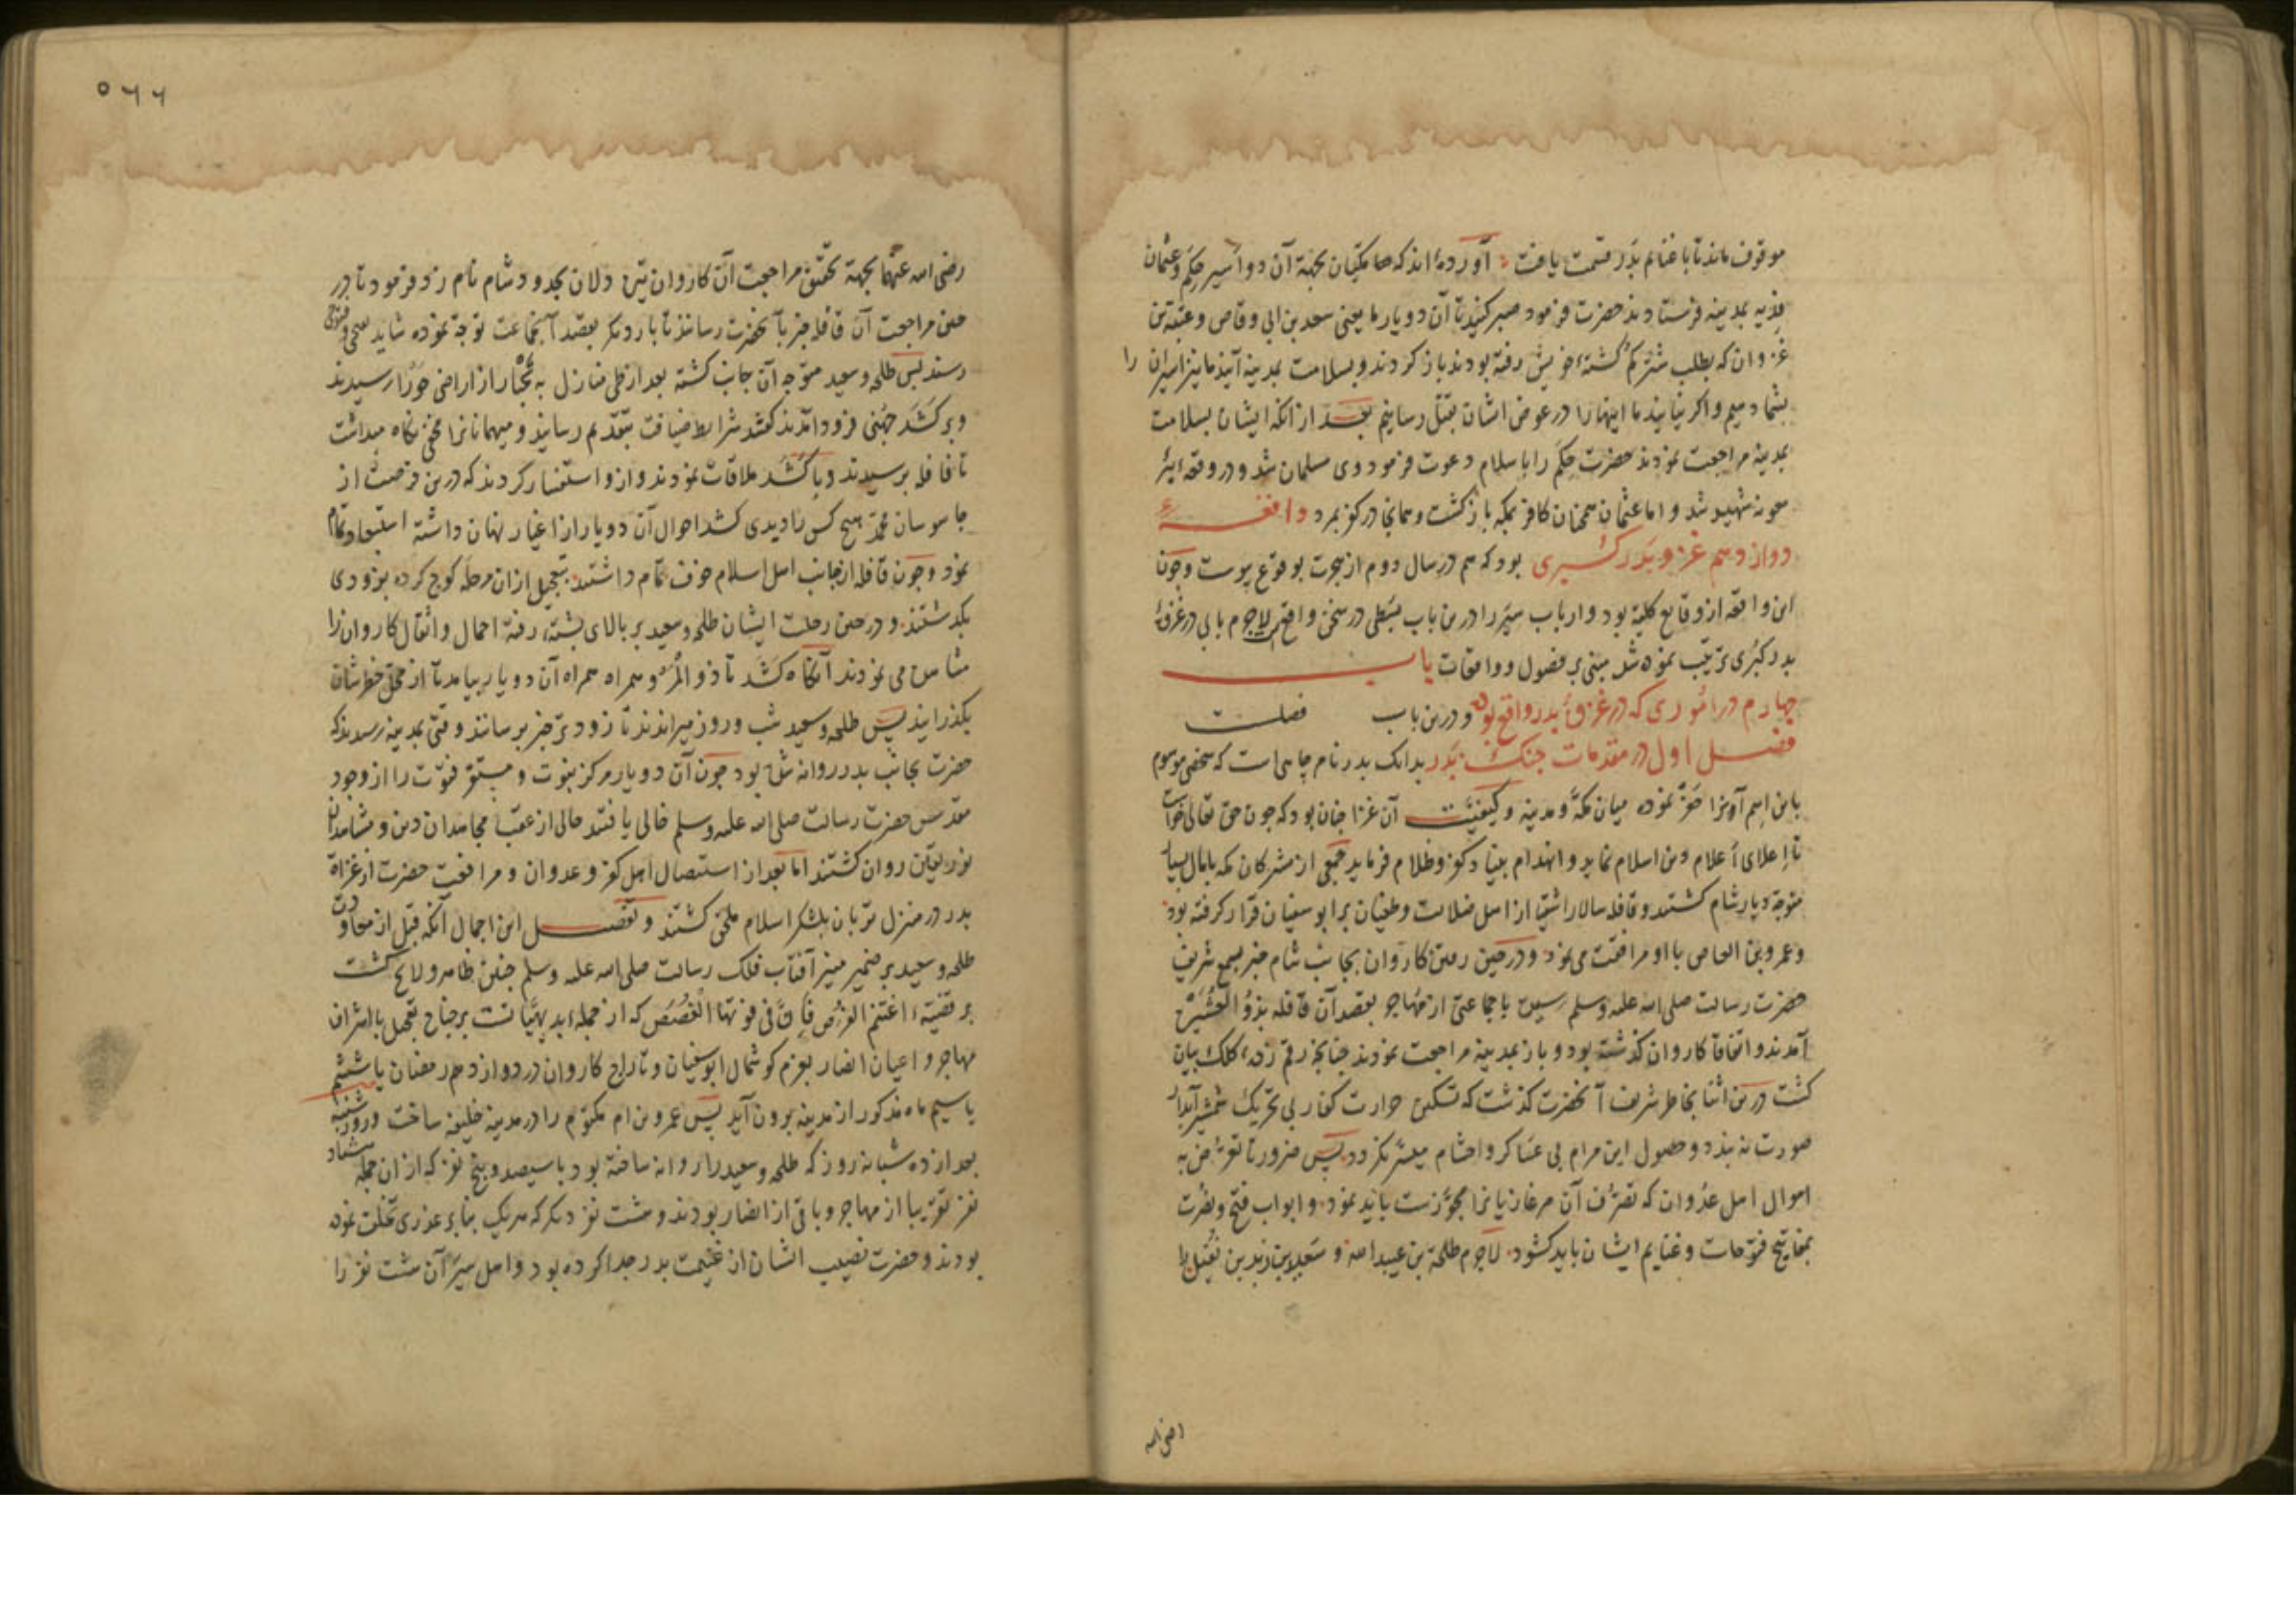 موقوف ماند تا با غنایم بدر قسمت یافت آورده اند که مکیان بجهة آن دو اسیر حکم و عثمان
فدیه بمدینه فرستادند حضرت فرمود صبر کنید تا آن دو یار ما یعنی سعد بن ابی وقاص و عتبة بن
غزوان که بطلب شتر گم کشته خویش رفته بودند باز کردند و بسلامت بمدینه آیند ما نیز اسیران را
بشما دهیم و اکر نیایند ما اینها را در عوض ایشان بقتل رسانیم بعد از آنکه ایشان بسلامت
بمدینه مراجعت نمودند حضرت حکم را باسلام دعوت فرمود وی مسلمان شد و در وقعه بئر
معونه شهید شد و اما عثمان همچنان کافر بمکه باز کشت و همانجا در کفر بمرد واقعه
دوازدهم غزوه بدر کبری بود که هم در سال دوم از هجرت بوقوع پیوست و چون
این واقعه از وقایع کلیه بود و ارباب سیر را درین باب بسطی در سخن واقع لاجرم بابی در غزوه
بدر کبری ترتیب نموده شد مبنی بر فصول و واقعات باب
چهارم در اموری که در غزوه بدر واقع بود و درین باب فصلست
فصل اول در مقدمات جنک بدر بدانک بدر نام چاهی است که شخصی موسوم
باین اسم آنرا حفر نموده میان مکه و مدینه و کیفیت آن غزا چنان بود که چون حق تعالی خواست
تا اعلای اعلام دین اسلام نماید و انهدام بنیاد کفر و ظلام فرماید جمعی از مشرکان مکه با مال بسیار
متوجه دیار شام کشتند و قافله سالار اشقیا از اهل ضلالت و طغیان بر ابو سفیان قرار کرفته بود
و عمرو بن العاص با او مرافقت می نمود و در حین رفتن کاروان بجانب شام خبر بسمع شریف
حضرت رسالت صلی الله علیه وسلم رسیده با جماعتی از مهاجر بقصد آن قافله بذو العشیره
آمدند و اتفاقا کاروان کذشته بود و باز بمدینه مراجعت نمودند چنانچه رقم زده کلک بیان
کشت درین اثنا بخاطر شریف آنحضرت کذشت که تسکین حرارت کفار بی تحریک شمشیر آبدار
صورت نه بندد و حصول این مرام بی عساکر و احشام میسر نکردد پس ضرورتا تعرض به
اموال اهل عدوان که تصرف آن مر غازیانرا مجوزست باید نمود و ابواب فتح و نصرت
بمفاتیح فتوحات و غنایم ایشان باید کشود لاجرم طلحة بن عبیدالله و سعید بن زید بن نفیل را
رضی الله
٥٦٦
رضی الله عنهما بجهة تحقیق مراجعت آن کاروان تیره دلان بحدود شام نام زد فرمود تا در
حین مراجعت آن قافله خبر بآنحضرت رسانند تا بار دیگر بقصد آنجماعت توجه نموده شاید
رسند پس طلحه و سعید متوجه آن جانب کشته بعد از طی منازل به نخبار از اراضی حورا رسیدند
و بر کشد جهنی فرود آمدند کشد شرایط ضیافت بتقدیم رسانید و میهمانانرا مخفی نکاه میداشت
تا قافله برسیدند و با کشد ملاقات نمودند و ازو استفسار کردند که درین فرصت از
جاسوسان محمد هیچ کس را دیدی کشد احوال آن دو یار از اغیار نهان داشته استبعاد تمام
نمود و چون قافله از جانب اهل اسلام خوف تمام داشتند بتعجیل از ان مرحله کوچ کرده بزودی
بکذشتند و در حین رحلت ایشان طلحه و سعید بر بالای پشته رفته احمال و اثقال کاروانرا
مشاهده می نمودند آنکاه کشد تا ذو المروه همراه آن دو یار بیامد تا از محل خطرشان
بکذرانید پس طلحه و سعید شب و روز میراندند تا زودتر خبر برسانند وقتی بمدینه رسیدند که
حضرت بجانب بدر روانه شده بود چون آن دو یار مرکز نبوت و مستقر فتوت را از وجود
مقدس حضرت رسالت صلی الله علیه وسلم خالی یافتند حالی از عقب مجاهدان دین و مشاهدان
نور یقین روان کشتند اما بعد از استیصال اهل کفر و عدوان و مرافقت حضرت از غزاة
بدر در منزل تربان بلشکر اسلام ملحق کشتند و تفصیل این اجمال آنکه قبل از معاودت
طلحه و سعید بر ضمیر منیر آفتاب فلک رسالت صلی الله علیه وسلم چنین ظاهر و لایح کشت
بر قضیه اغتنم الفرص فان فی فوتها الغصص که از جمله بدیهیاتست بر جناح تعجیل با اشراف
مهاجر و اعیان انصار بعزم کوشمال ابوسفیان و تاراج کاروان در دوازدهم رمضان یا ششم
یا سیم ماه مذکور از مدینه برون آید پس عمرو بن ام مکتوم را در مدینه خلیفه ساخت و روز شنبه
بعد از ده شبانه روز که طلحه و سعید را روانه ساخته بود با سیصد و پنج نفر که از ان جمله هشتاد
نفر تقریبا از مهاجر و باقی از انصار بودند و هشت نفر دیگر که هریک بنابر عذری تخلف نموده
بودند و حضرت نصیب ایشان از غنیمت بدر جدا کرده بود و اهل سیر آن هشت نفر را